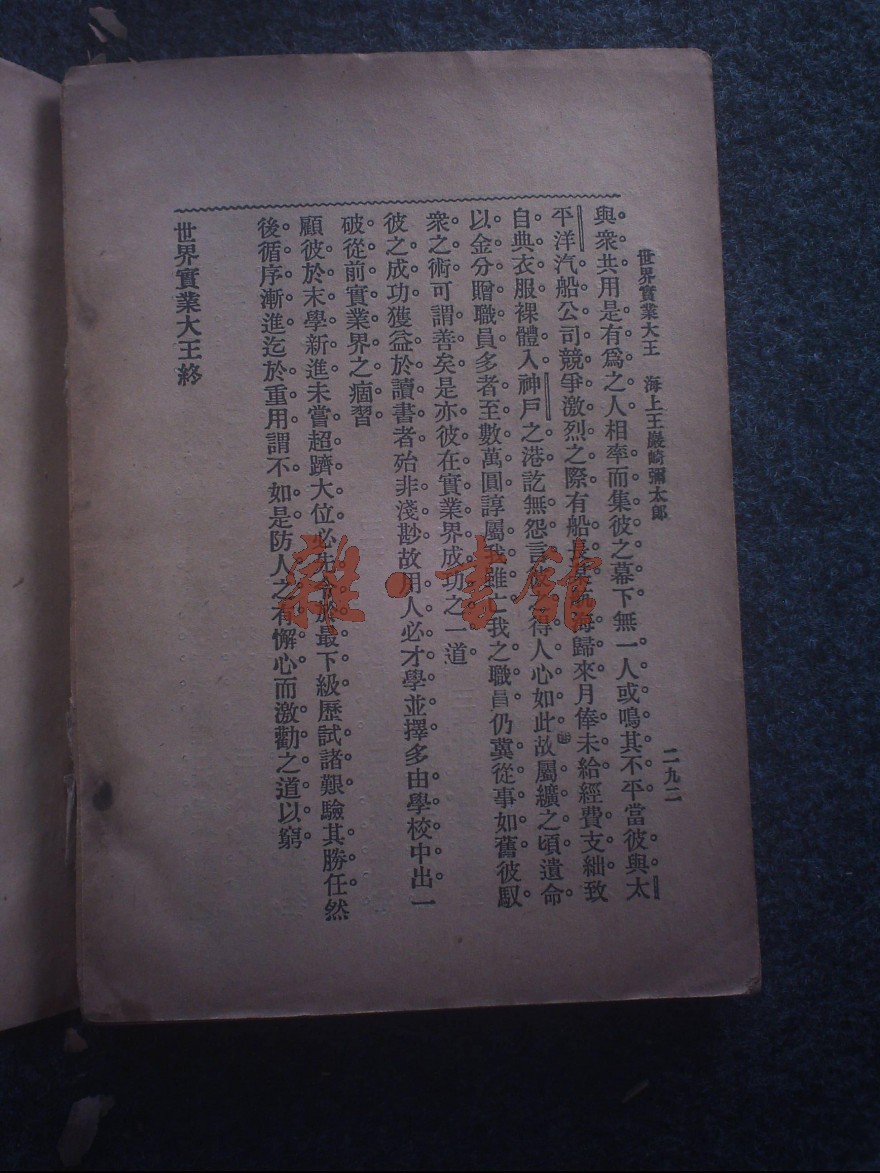 世界實業大王　海上王巖崎彌太郎
二九二
與衆共用是有爲之人相率而集彼之幕下無一人或鳴其不平當彼與太
平洋汽船公司競爭激烈之際有船長某航海歸來月俸未給經費支絀致
自典衣服裸體入神戶之港訖無怨言彼之得人心如此故屬纊之頃遺命
以金分贈職員多者至數萬圓諄屬我雖亡我之職員仍冀從事如舊彼馭
衆之術可謂善矣是亦彼在實業界成功之一道
彼之成功獲益於讀書者殆非淺尠故用人必才學並擇多由學校中出一
破從前實業界之痼習
顧彼於末學新進未嘗超躋大位必先令於最下級歷試諸艱驗其勝任然
後循序漸進迄於重用謂不如是防人之有懈心而激勸之道以窮
世界實業大王終
雜·書館